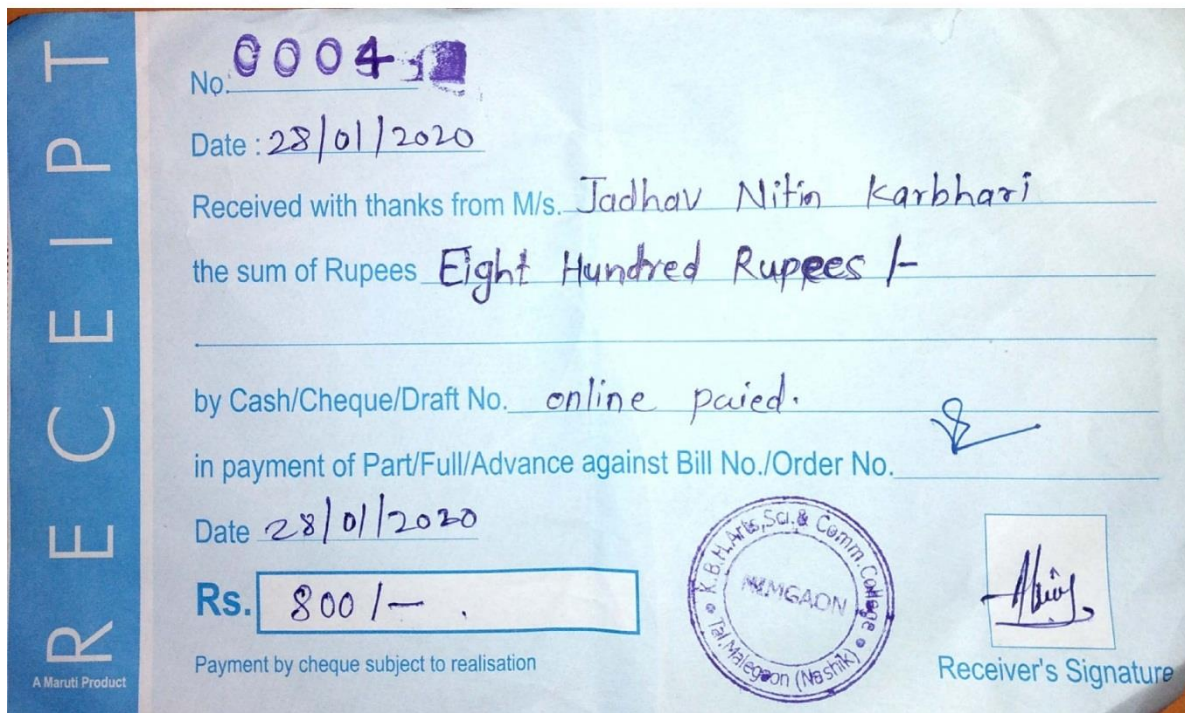 RECEIPT
A Maruti Product
No. 0004
Date : 28/01/2020
Received with thanks from M/s. Jadhav Nitin Karbhari
the sum of Rupees Eight Hundred Rupees /-
by Cash/Cheque/Draft No. online paied.
in payment of Part/Full/Advance against Bill No./Order No.
Date 28/01/2020
Rs. 800/-.
Payment by cheque subject to realisation
K.B.H. Arts, Sci. & Comm. College
NIMGAON
Tal. Malegaon (Nashik)
Receiver's Signature